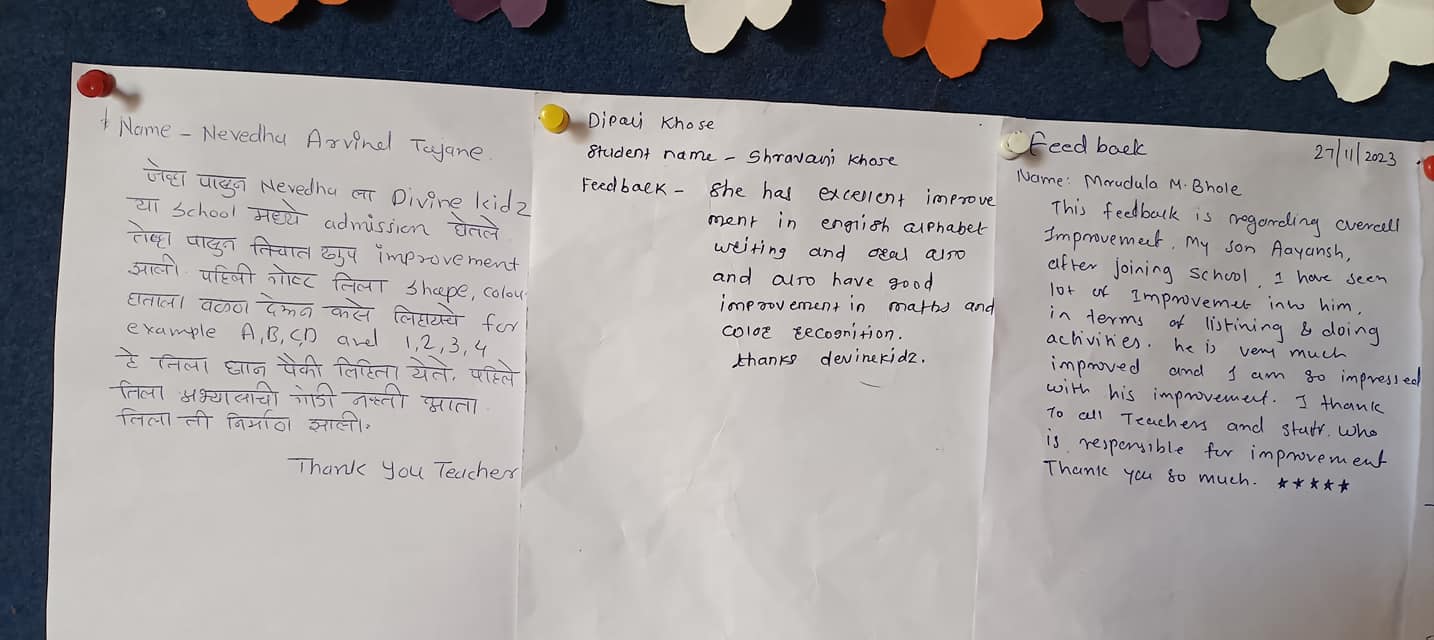 Name - Nevedha Arvind Tajane.
जेव्हा पासून Nevedha ला Divine kidz
या school मध्ये admission घेतले
तेव्हा पासून तिच्यात खुप improvement
झाली. पहिली गोष्ट तिला shape, colou
हाताला वळण देऊन कसे लिहायचे for
example A,B,C,D and 1,2,3,4
हे तिला छान पैकी लिहिता येते. पहिले
तिला अभ्यासाची गोडी नव्ती आता
तिला ती निर्माण झाली.
Thank you Teacher
Dipali Khose
Student name - Shravani Khose
Feedback - She has excellent improve
ment in english alphabet
writing and oral also
and also have good
improvement in maths and
color recognition.
thanks devinekidz.
Feedback 27/11/2023
Name: Mrudula M. Bhole
This feedback is regarding overall
Improvement. My son Aayansh,
after joining school, I have seen
lot of Improvemet inw him,
in terms of listining & doing
activities. he is very much
improved and I am so impressed
with his improvement. I thank
To all Teachers and staff. who
is responsible for improvement
Thank you so much. ★★★★★